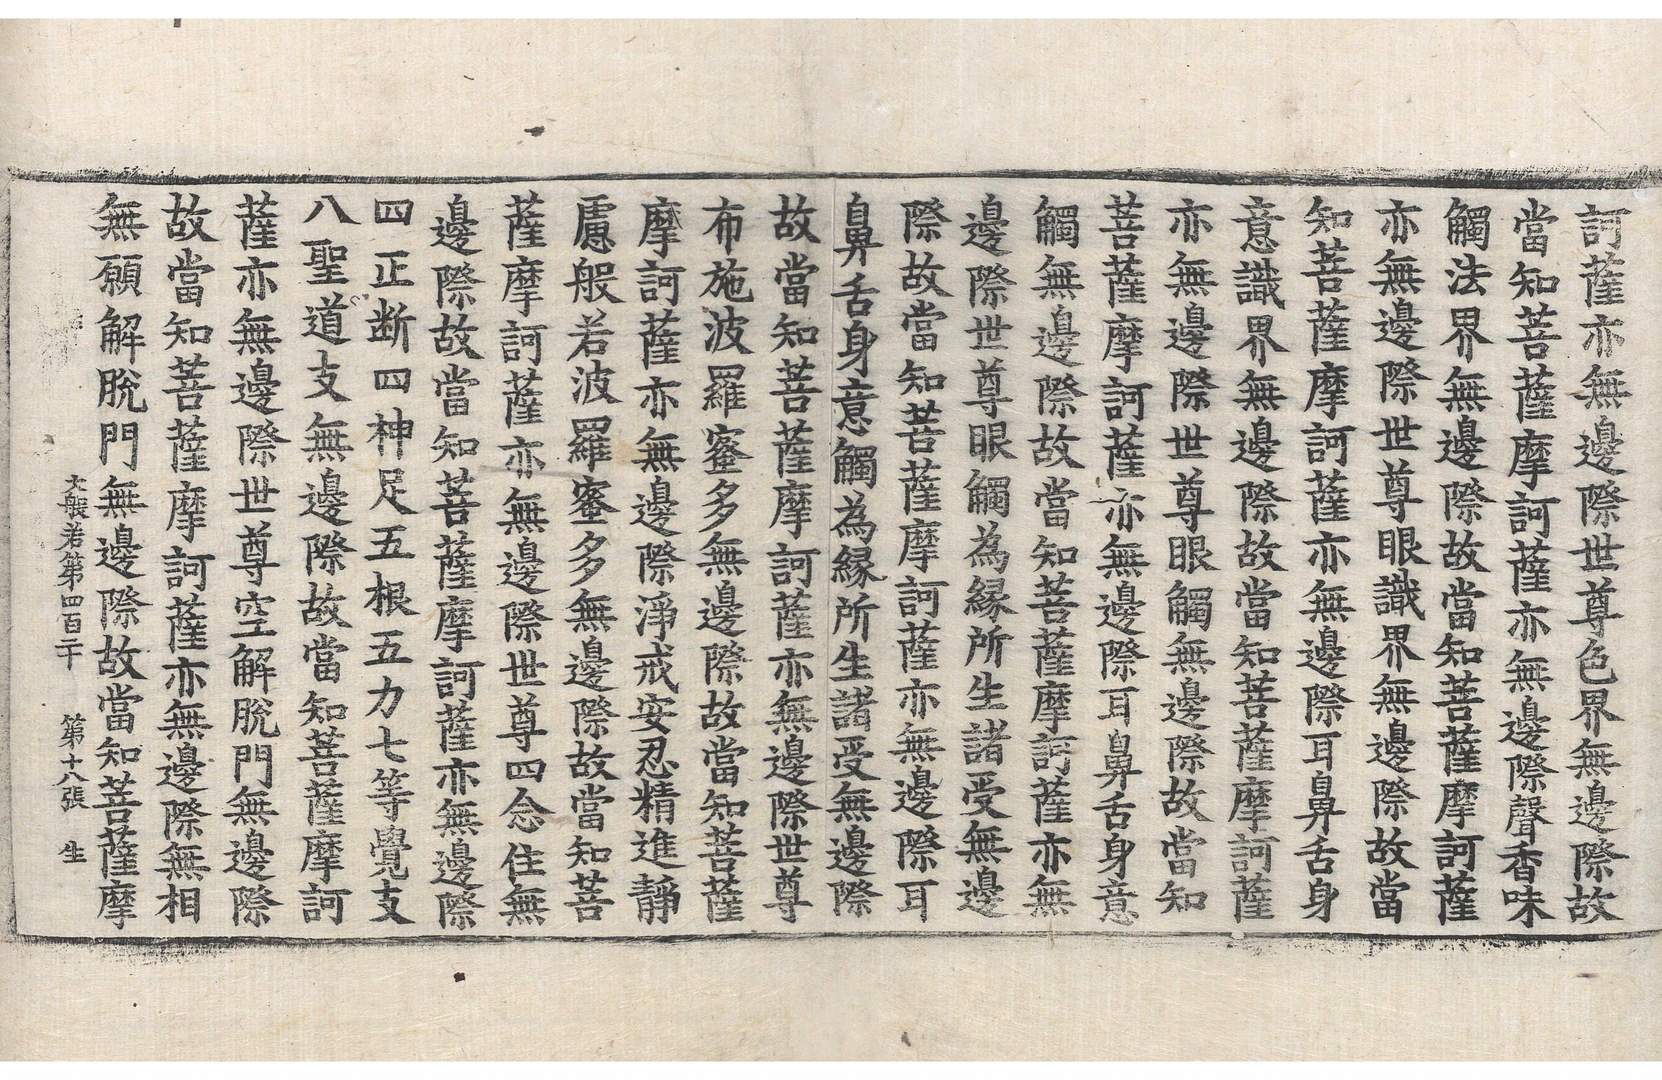 訶薩亦無邊際世尊色界無邊際故
當知菩薩摩訶薩亦無邊際聲香味
觸法界無邊際故當知菩薩摩訶薩
亦無邊際世尊眼識界無邊際故當
知菩薩摩訶薩亦無邊際耳鼻舌身
意識界無邊際故當知菩薩摩訶薩
亦無邊際世尊眼觸無邊際故當知
菩薩摩訶薩亦無邊際耳鼻舌身意
觸無邊際故當知菩薩摩訶薩亦無
邊際世尊眼觸為緣所生諸受無邊
際故當知菩薩摩訶薩亦無邊際耳
鼻舌身意觸為緣所生諸受無邊際
故當知菩薩摩訶薩亦無邊際世尊
布施波羅蜜多無邊際故當知菩薩
摩訶薩亦無邊際淨戒安忍精進靜
慮般若波羅蜜多無邊際故當知菩
薩摩訶薩亦無邊際世尊四念住無
邊際故當知菩薩摩訶薩亦無邊際
四正断四神足五根五力七等覺支
八聖道支無邊際故當知菩薩摩訶
薩亦無邊際世尊空解脫門無邊際
故當知菩薩摩訶薩亦無邊際無相
無願解脫門無邊際故當知菩薩摩
大般若第四百二十 第十八張 生